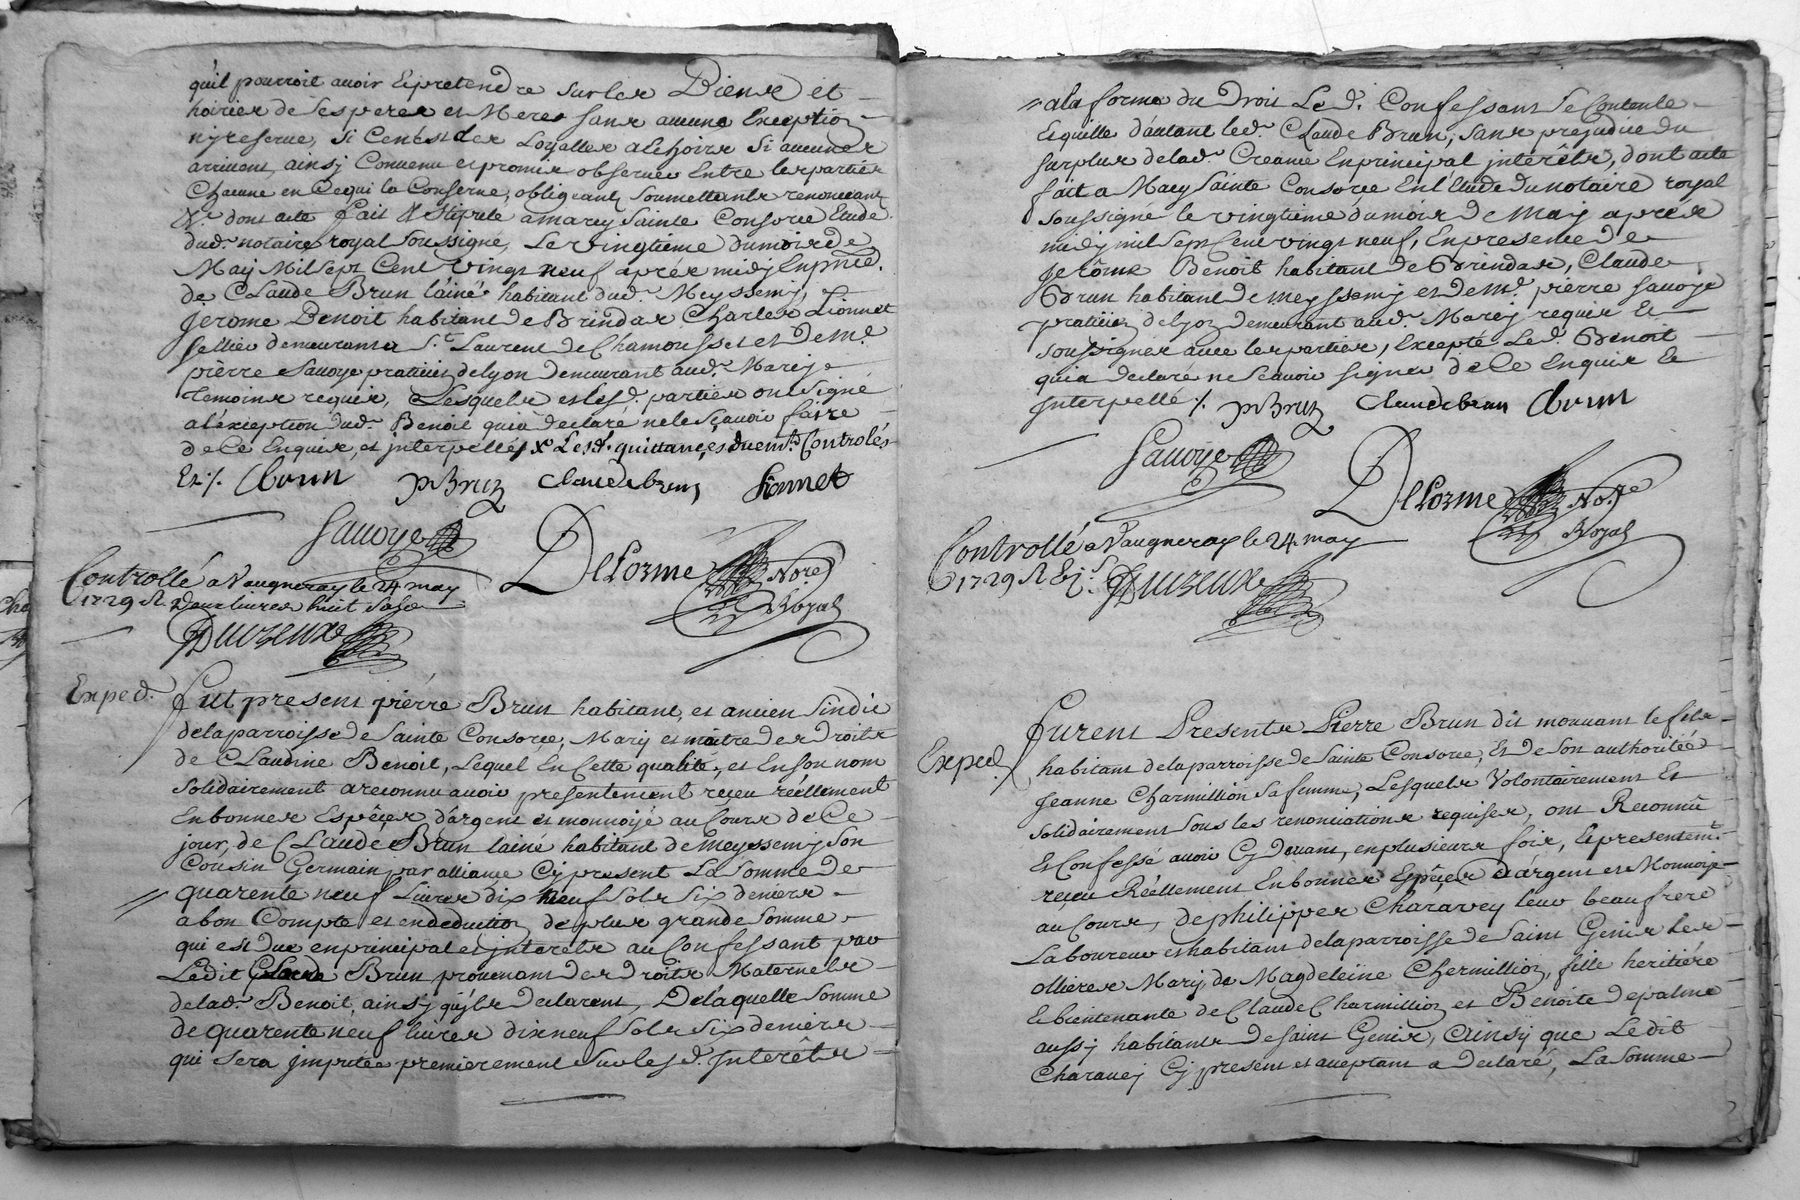 qu'il pourroit avoir et pretendre sur les Biens et
hoiries de ses peres et Meres sans aucune Exception
ny reserve, si Cen'est les Loyalles alehoirs si aucunes
arrivent, ainsy Convenu et promis observer Entre les parties
Chacune en Ce qui la Conserne, obligeants soumettants renonceants
&c. dont acte fait & stipulé a Marcy Sainte Consorce Etude
dud. notaire royal soussigné, Le vingtieme du mois de
May Mil sept Cent vingt neuf après midy En pnce.
de CLaude Brun l'ainé habitant dud. Meyssemy,
Jerome Benoit habitant de Brindas Charles Lionnet
sellier demeurant a St. Laurent de Chamousset et de Me.
pierre Savoye praticien de lyon demeurant aud. Marcy
Temoins requis, Lesquels et lesd. parties ont signé
a l'éxception dud. Benoit qui a declaré ne le sçavoir faire
de Ce Enquis, et interpellé, x Lesd. quittances duemt. Controlés
Ez ./. Cbrun pBrun Claude brun Lionnet
Savoye
DeLorme Nore. Royal
Controllé a Vaugneray le 24 may
1729 R. Deux livres huit sols
Duvzeux
Exped. Fut present pierre Brun habitant, et ancien sindic
de la parroisse de Sainte Consorce, Mary et maitre des Droits
de CLaudine Benoit, Lequel En Cette qualité, et En son nom
solidairement a reconnu avoir presentement reçu réellement
En bonnes Espêces d'argent et monnoye au Cours de Ce
jour, de CLaude Brun lainé habitant de Meyssemy son
Cousin Germain par alliance Cy present La Somme de
quarente neuf Livres dix neuf sols six deniers
a bon Compte et en deduction de plus grande somme
qui est due en principal et interets au Confessant par
Ledit Claude Brun, provenant des Droits Maternels
de lad. Benoit, ainsy qu'ils declarent, De laquelle somme
de quarente neuf livres dix neuf sols six deniers
qui sera imputée premierement sur lesd. Interêts
a la forme du Droit Led. Confessant se Contente
Et quitte d'autant led. CLaude Brun, sans prejudice du
surplus de lad. Creance En principal interêts, dont acte
fait a Marcy Sainte Consorce En l'Etude du notaire royal
soussigné le vingtieme du mois de May après
midy mil sept Cent vingt neuf, En presence de
Jerôme Benoit habitant de Brindas, Claude
Brun habitant de Meyssemy et de Me. pierre Savoye
praticien de lyon demeurant aud. Marcy requis Et
soussignés avec les parties, Excepté Led. Benoit
qui a declaré ne sçavoir signer de Ce Enquis Et
interpellé ./. pBrun Claude brun Cbrun
Savoye
DeLorme Nore. Royal
Controllé a Vaugneray le 24 may
1729 R.
Duvzeux
Exped. Furent Presents Pierre Brun dit mouvant le fils
habitant de la parroisse de Sainte Consorce, Et de son authorité
Jeanne Charmillion sa femme, Lesquels Volontairement Et
solidairement sous les renonciations requises, ont Reconnû
Et Confessé avoir Cy devant, en plusieurs fois, Et presentemt.
reçeu Réellement En bonnes Espêces d'argent et Monnoye
au Cours, de philippes Charavey leur beaufrere
Laboureur et habitant de la parroisse de Saint Genis les
ollieres Mary de Magdeleine Chermillion, fille heritiére
Et bientenante de Claude Charmillion et Benoite depalme
aussy habitants de Saint Genis, Ainsy que Ledit
Charavey Cy present et acceptant a Declaré, La somme